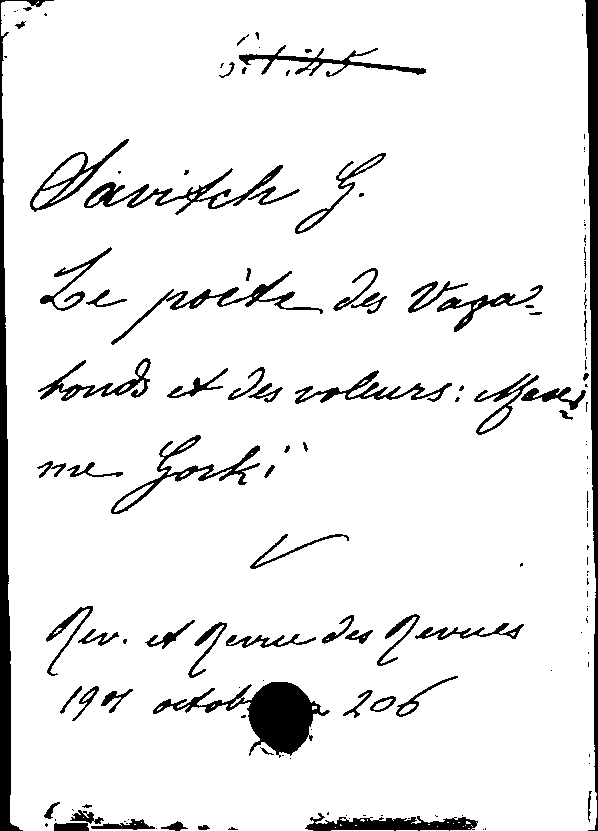 6.1.45
Savitch G.
Le poète des Vaga-
bonds et des voleurs: Maxi-
me Gorki
Rev. et Revue des Revues
1901 octob 206